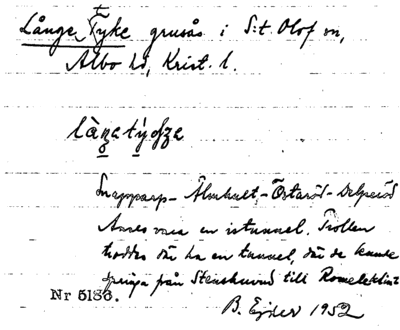 Långe Tyke grusås i S:t Olof sn,
Albo hd, Krist. l.
Snapparp - Älmhult - Östaröd -
Anses vara en istunnel. Trollen
troddes där ha en tunnel, där de kunde
springa från Stenshuvud till Romeleklint
Nr 5186.
B. Ejder 1952